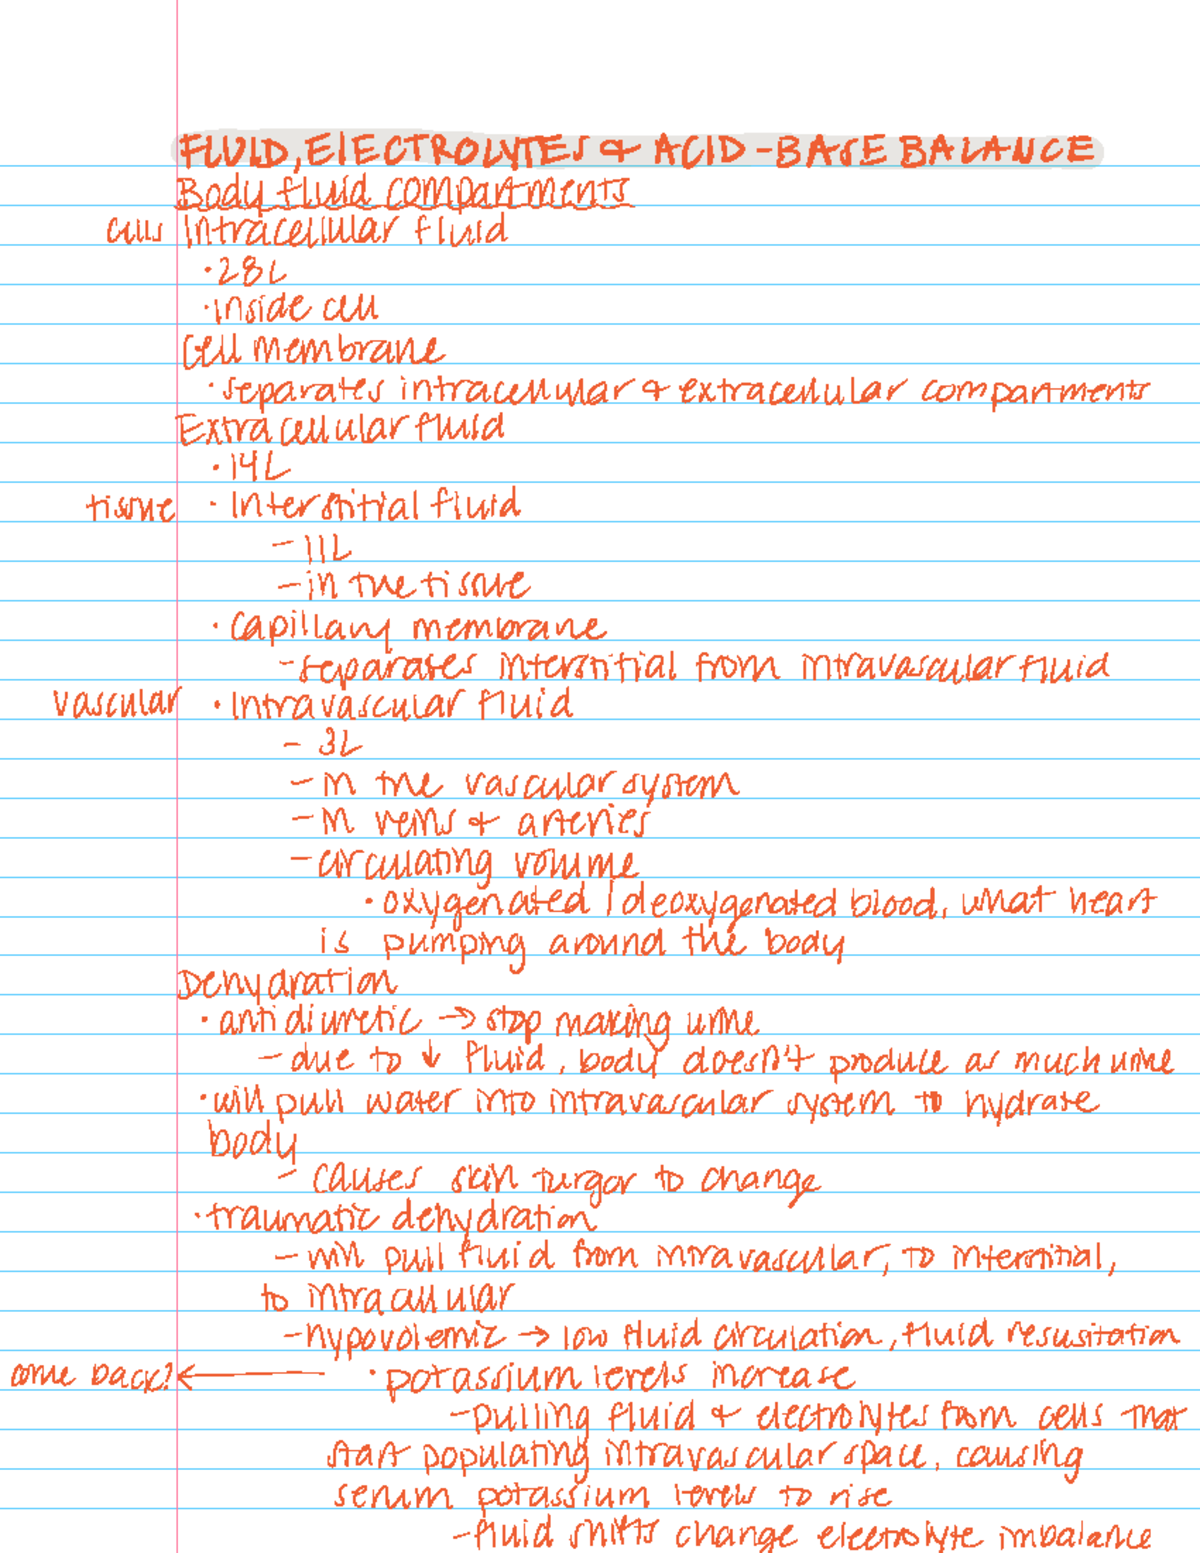 FLUID, ElECTROLYTES & ACID-BASE BALANCE
Body fluid compartments
cells Intracellular fluid
· 28L
· inside cell
Cell membrane
· separates intracellular & extracellular compartments
Extracellular fluid
· 14L
tissue · Interstitial fluid
- 11L
- in the tissue
· capillary membrane
- separates interstitial from intravascular fluid
vascular · Intravascular fluid
- 3L
- in the vascular system
- in veins & arteries
- circulating volume
· oxygenated / deoxygenated blood, what heart
is pumping around the body
Dehydration
· antidiuretic → stop making urine
- due to ↓ fluid, body doesn't produce as much urine
· will pull water into intravascular system to hydrate
body
- causes skin turgor to change
· traumatic dehydration
- will pull fluid from intravascular, to interstitial,
to intracellular
- hypovolemic → low fluid circulation, fluid resusitation
come back? ← · potassium levels increase
- pulling fluid & electrolytes from cells that
start populating intravascular space, causing
serum potassium levels to rise
- fluid shifts change electrolyte imbalance